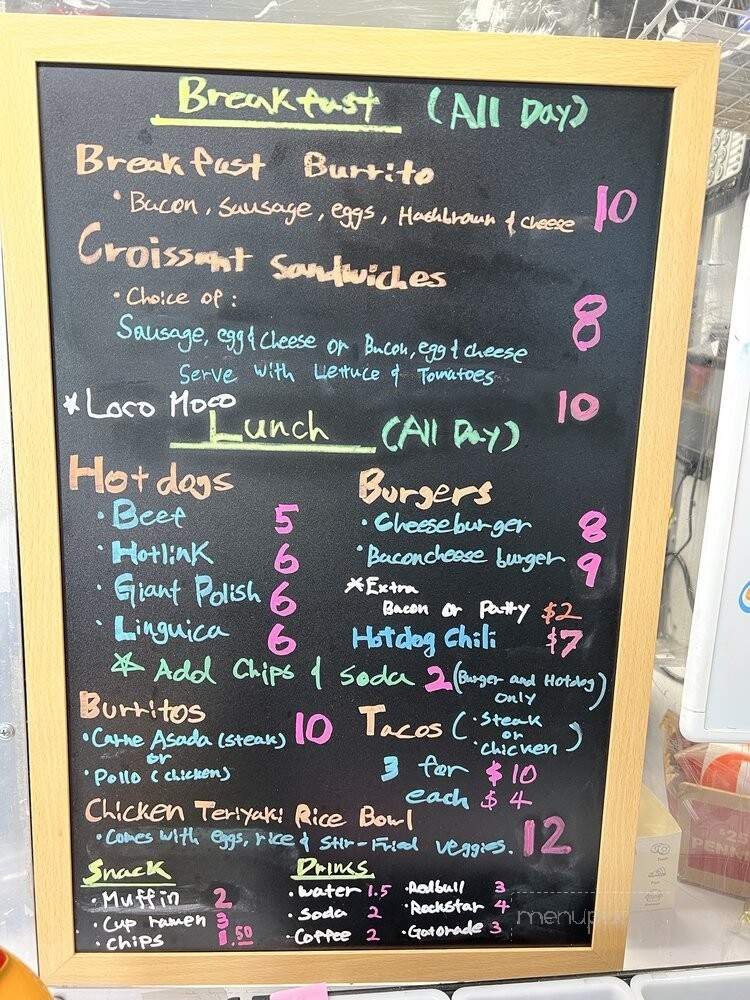 Breakfast (All Day)
Breakfast Burrito
• Bacon, sausage, eggs, Hashbrown & cheese 10
Croissant Sandwiches
• Choice of:
Sausage, egg & cheese or Bacon, egg & cheese 8
Serve with Lettuce & Tomatoes
* Loco Moco 10
Lunch (All Day)
Hotdogs
• Beef 5
• Hotlink 6
• Giant Polish 6
• Linguica 6
Burgers
• Cheeseburger 8
• Baconcheese burger 9
*Extra
Bacon or Patty $2
Hotdog Chili $7
☆ Add Chips & Soda 2 (Burger and Hotdog
only)
Burritos 10
• Carne Asada (steak)
or
• Pollo (chicken)
Tacos (• Steak
or
• chicken)
3 for $10
each $4
Chicken Teriyaki Rice Bowl
• Comes with eggs, rice & Stir-Fried veggies. 12
Snack
• Muffin 2
• Cup ramen 3
• Chips 1.50
Drinks
• Water 1.5
• Soda 2
• Coffee 2
• Redbull 3
• Rockstar 4
• Gatorade 3